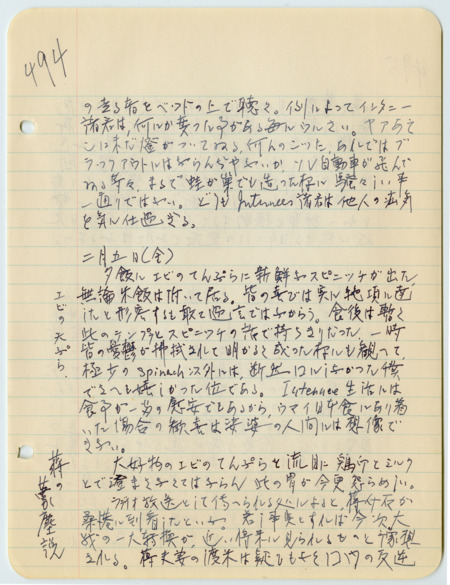 494
の走る音をベッドの上で聴く。例によってインタニー
諸君は、何んか変った事がある毎にウルさい。ヤアあそ
こに未だ燈がついてゐる、何んのこった、あれではブ
ラックアウトにはならんぢやないか、ソレ自動車が飛んで
ゐる等々、まるで蜂が巣でも造った様に騒々しい事
一通りではない。どうもInternee諸君は他人の
を気にし過ぎる。
二月五日(金)
夕飯にエビのてんぷらに新鮮なスピニッチが出た
無論米飯は附いて居る。皆の喜びは実に絶頂に達
したと形容しても敢て過言ではなからう。食後は暫く
此のテンプラとスピニッチの話で持ちきりだった。一時
皆の憂鬱が払拭されて明かるく成った様にも観へて
極少のspinach以外には、断然口にしなかった僕
でさへも嬉しかった位である。Internee生活には
食事が一番の慰安でもあるから、ウマイ日本食にあり着
いた場合の歓喜は娑婆の人間には想像で
きない。
エビの天ぷら
大好物のエビのてんぷらを流目に鶏卵とミルク
とで澄まさなくてはならん此の胃が今更怨らめしい。
蒋の蒙塵説
放送として伝へられる処によると、蒋介石が
桑港に到着したといふ。若し事実とすれば今次大
戦の一大転換が近い将来に見られるものと予想
される。蒋夫妻の渡米は疑ひもなく口内の反逆